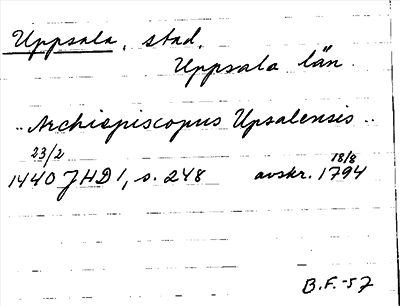 Uppsala, stad,
Uppsala län.
..Archiepiscopus Upsalensis..
23/2 18/8
1440 JHD 1, s. 248 avskr. 1794
B.F.-57